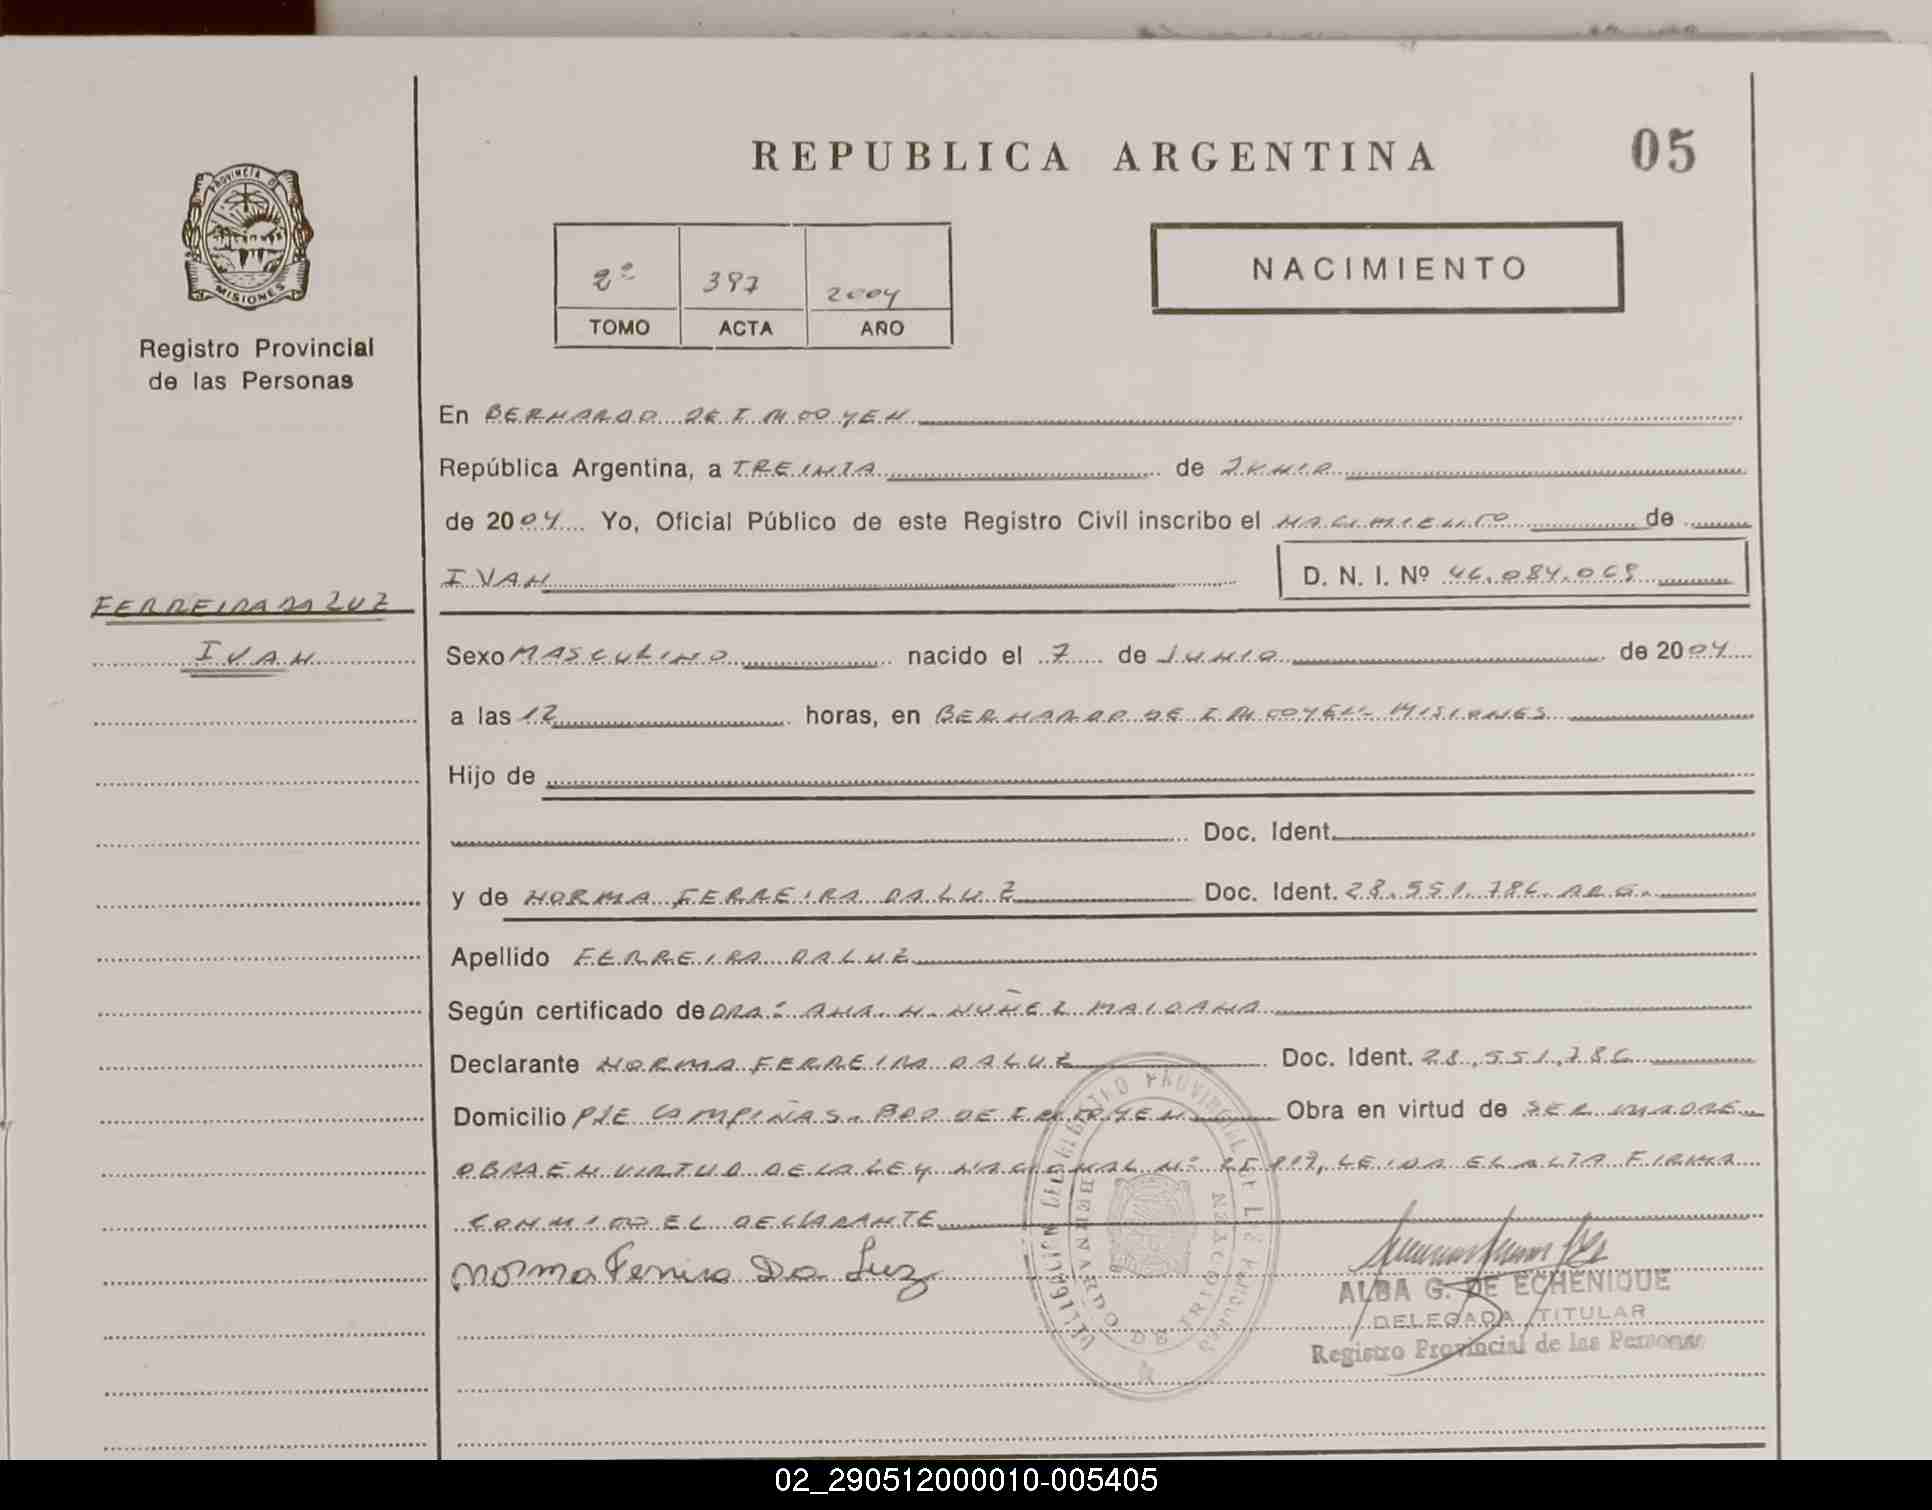 REPUBLICA ARGENTINA
05
PROVINCIA DE
MISIONES
Registro Provincial
de las Personas
2º 397 2004
TOMO ACTA AÑO
NACIMIENTO
En BERNARDO DE IRIGOYEN
República Argentina, a TREINTA de JUNIO
de 2004 Yo, Oficial Público de este Registro Civil inscribo el NACIMIENTO de
IVAN D. N. I. Nº 46.084.069
FERREIRA DA LUZ
IVAN
Sexo MASCULINO nacido el 7 de JUNIO de 2004
a las 12 horas, en BERNARDO DE IRIGOYEN- MISIONES
Hijo de
Doc. Ident.
y de NORMA FERREIRA DA LUZ Doc. Ident. 28.551.786 ARG.
Apellido FERREIRA DA LUZ
Según certificado de DRA: ANA N. NUÑEZ MAIDANA
Declarante NORMA FERREIRA DA LUZ Doc. Ident. 28.551.786
Domicilio PJE CAMPIÑAS. BDO DE IRIGOYEN Obra en virtud de SER MADRE
OBRA EN VIRTUD DE LA LEY NACIONAL Nº LEIDA EL ACTA FIRMA
CONMIGO EL DECLARANTE
Norma Ferreira Da Luz
ALBA G. DE ECHENIQUE
DELEGADA TITULAR
Registro Provincial de las Personas
DELEGACION DEL REGISTRO PROVINCIAL DE LAS PERSONAS
BERNARDO DE IRIGOYEN
02_290512000010-005405